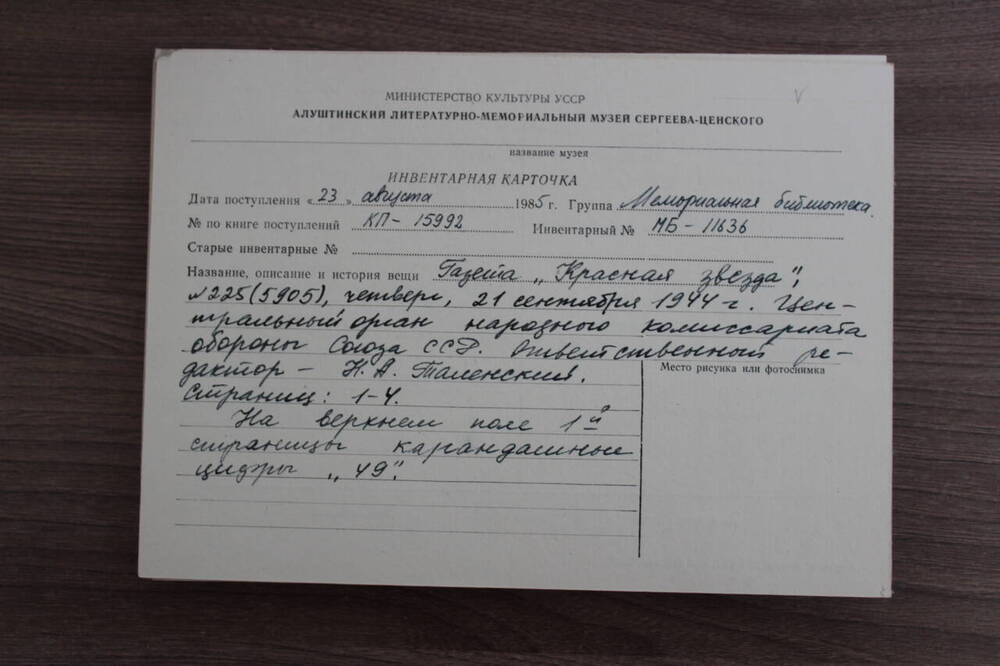 МИНИСТЕРСТВО КУЛЬТУРЫ УССР
АЛУШТИНСКИЙ ЛИТЕРАТУРНО-МЕМОРИАЛЬНЫЙ МУЗЕЙ СЕРГЕЕВА-ЦЕНСКОГО
название музея
ИНВЕНТАРНАЯ КАРТОЧКА
Дата поступления «23» августа 1985 г. Группа Мемориальная библиотека.
№ по книге поступлений КП - 15992 Инвентарный № МБ - 11636
Старые инвентарные №
Название, описание и история вещи Газета „Красная звезда",
№225 (5905), четверг, 21 сентября 1944 г. Цен-
тральный орган народного комиссариата
обороны Союза ССР. Ответственный ре-
дактор - Н. А. Таленский.
Место рисунка или фотоснимка
Страниц: 1-4.
На верхнем поле 1й
страницы карандашные
цифры „49".